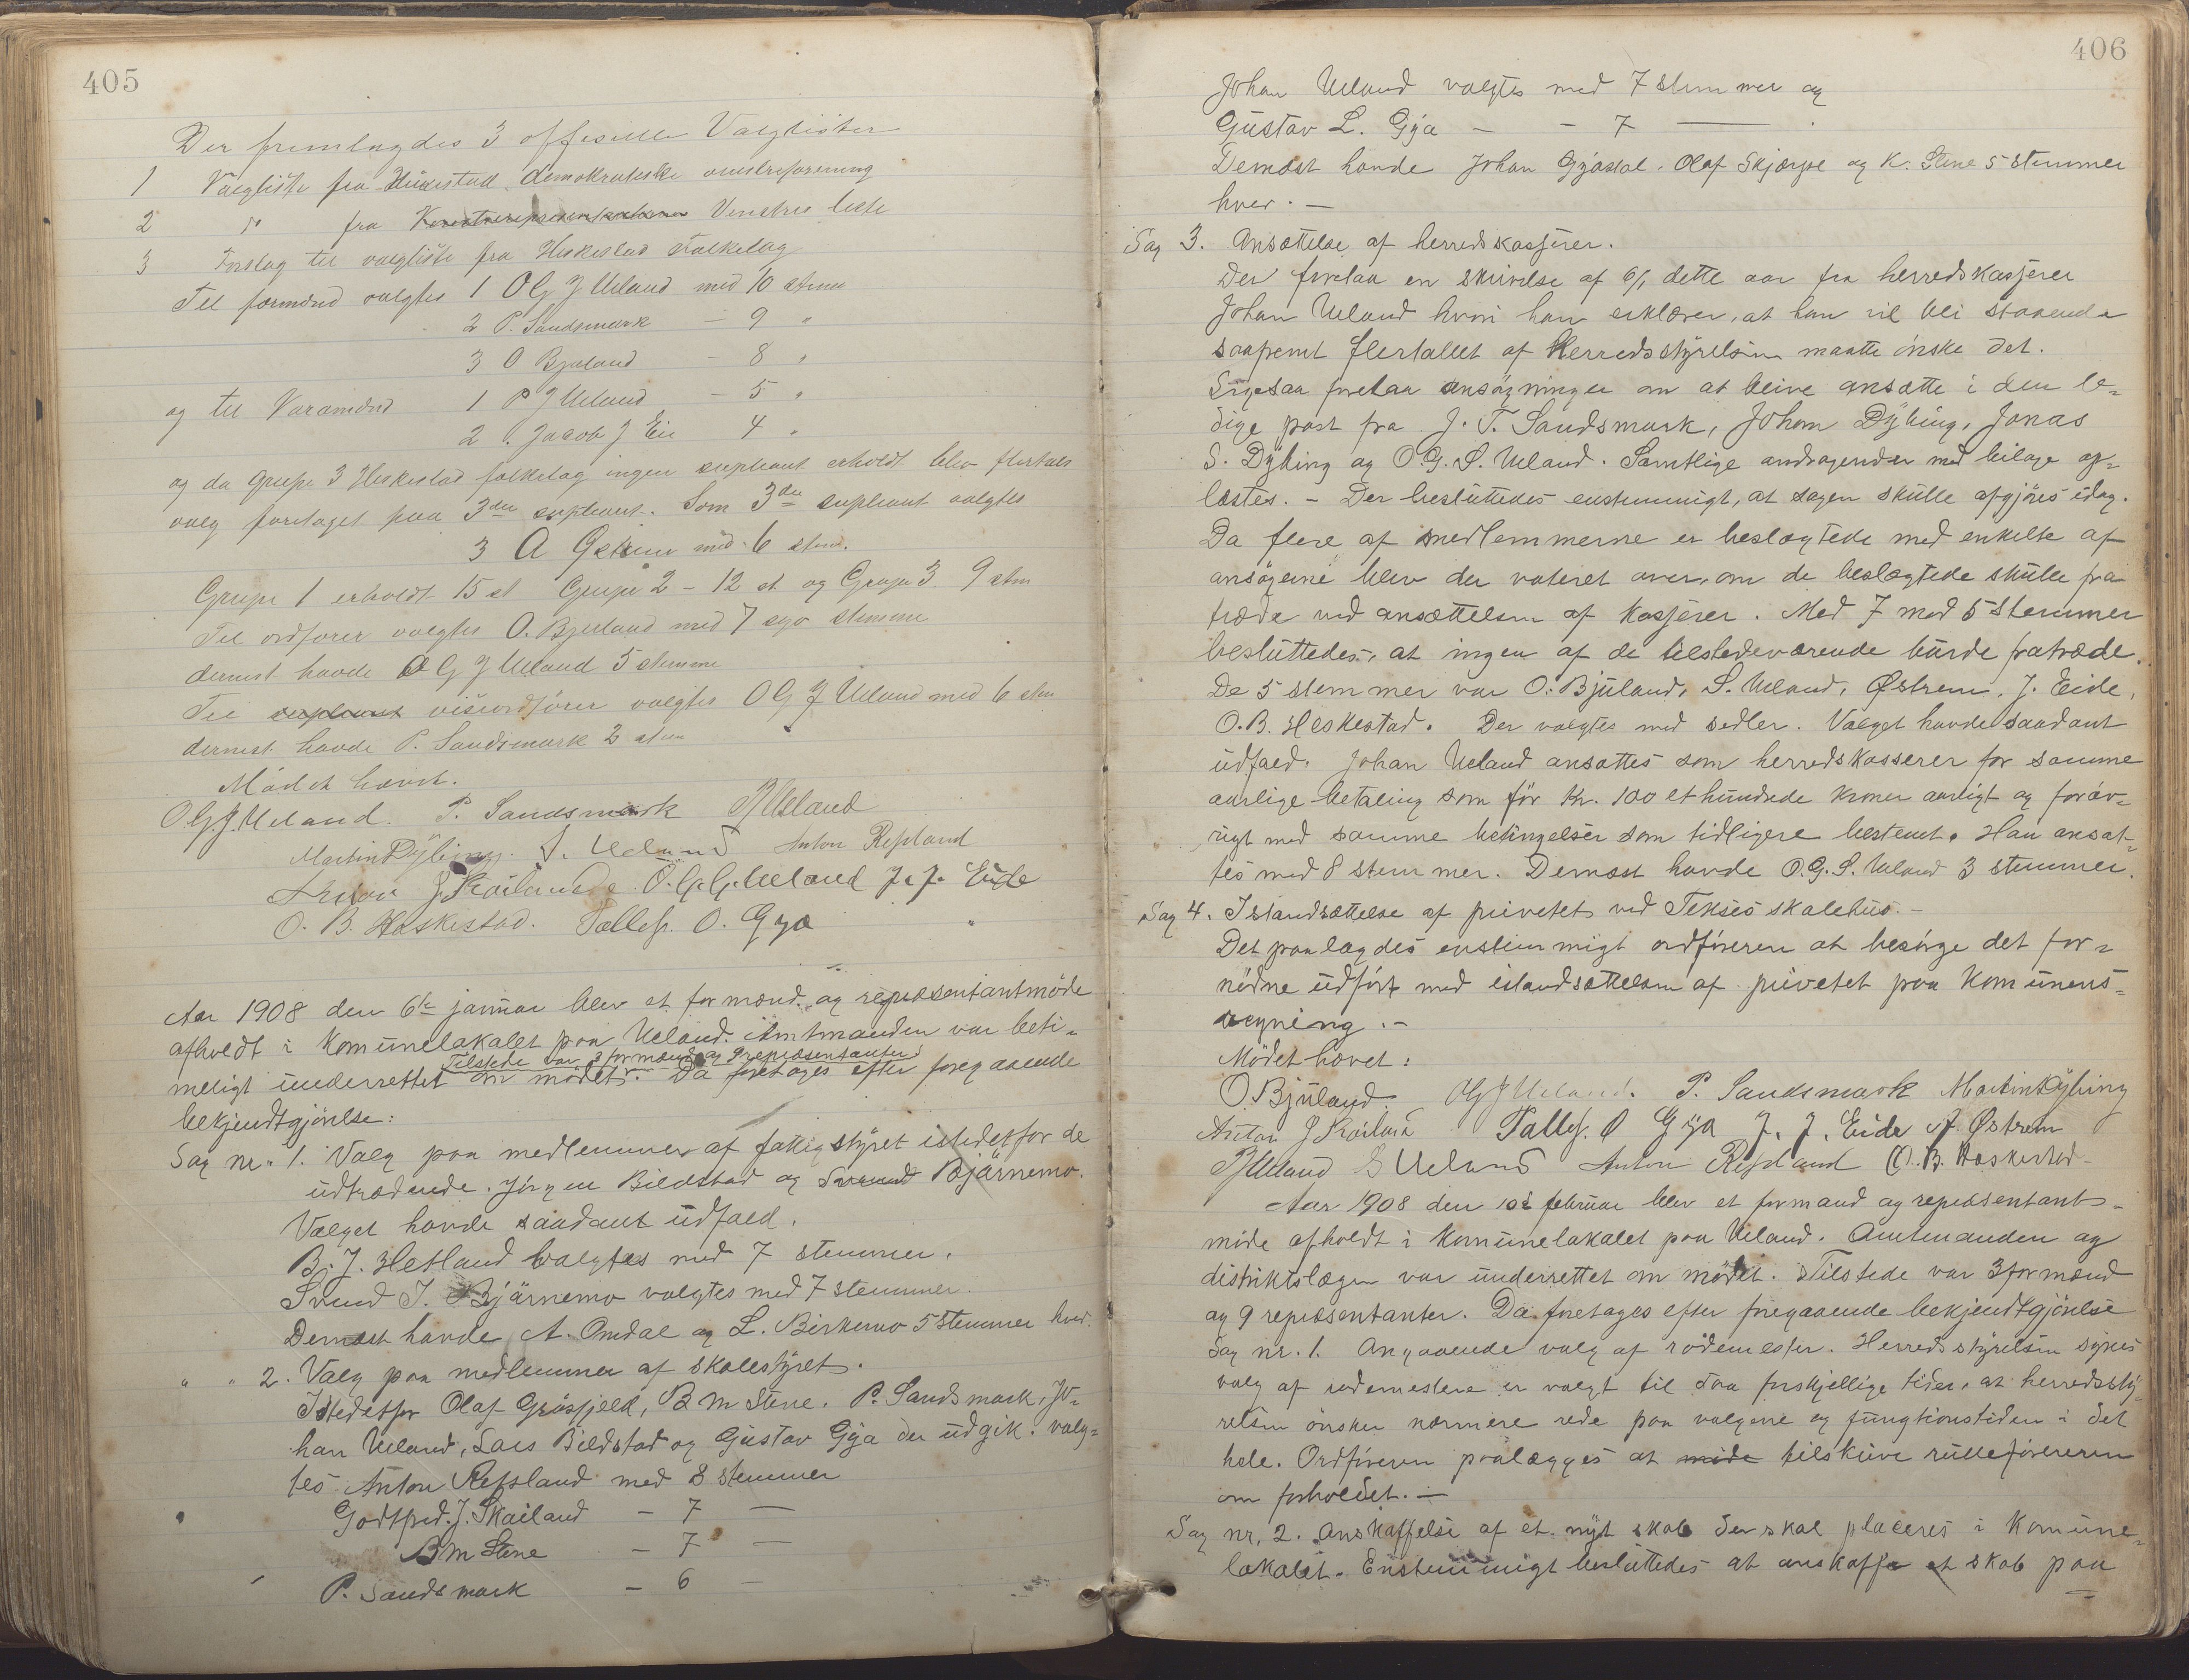 405
Der fremlagdes 3 offisielle Valglister
1 Valgliste fra Heskestad demokratiske venstreforening
2 " fra Venstres liste
3 Forslag til valgliste fra Heskestad Folkelag
Til formænd valgtes 1 O G J Ueland med 10 stem
2 P. Sandsmark – 9 "
3 O Bjuland – 8 "
og til Varamænd 1 P J Ueland – 5 "
2 Jacob J Eie 4 "
og da Grupe 3 Heskestad folkelag ingen supleant erholdt blev flertals
valg foretaget paa 3die supleant. Som 3die supleant valgtes
3 A Østrem med 6 stem.
Grupe 1 erholdt 15 st Grupe 2 – 12 st og Grupe 3 9 stm
Til ordfører valgtes O. Bjuland med 7 syv stemme
dernest havde O G J Ueland 5 stemme
Til supleant viseordfører valgtes O G J Ueland med 6 stm
dernest havde P. Sandsmark 2 stm
Mødet hævet.
O.G.J. Ueland. P. Sandsmark PJUeland
Martin Dybing. S. Ueland Anton Refsland
J Skailand O.G.G. Ueland J. J. Eide
O. B. Heskestad. Tallef. O. Gya
Aar 1908 den 6te januar blev et formænd og repræsentantmøde
afholdt i Komunelokalet paa Ueland. Amtmanden var beti-
Tilstede var 3 formænd og 9 repræsentanter
meligt underrettet om mødet. Da foretoges efter foregaaende
bekjendtgjörelse:
Sag nr. 1. Valg paa medlemmer af fattigstyret istedetfor de
udtrædende. Jörgen Bildstad og Svend Bjärnemo.
Valget havde saadant udfald.
B. J. Hetland valgtes med 7 stemmer.
Svend I. Bjärnemo valgtes med 7 stemmer.
Dernæst havde A. Omdal og L. Birkemo 5 stemmer hver.
" " 2. Valg paa medlemmer af skolestyret.
Istedetfor Olaf Gräsfjeld, B M Stene. P. Sandsmark, Jo-
han Ueland, Lars Bildstad og Gustav Gya der udgik. valg-
tes Anton Refsland med 8 stemmer
Godtfred. J. Skailand – 7 —
B M Stene – 7 —
P. Sandsmark – 6 —
406
Johan Ueland valgtes med 7 stemmer og
Gustav L. Gya – – 7 —
Dernæst havde Johan Gyastøl. Olaf Skjærpe og K. Stene 5 stemmer
hver. –
Sag 3. Ansættelse af herredskasjerer.
Der forelaa en skrivelse af 6/1 dette aar fra herredskasjerer
Johan Ueland hvori han erklærer, at han vil bli staaende
saafremt flertallet af Herredsstyrelsen maatte önske det.
Ligesaa forelaa ansögninger om at blive ansatte i den le-
dige post fra J. T. Sandsmark, Johan Dybing, Jonas
S. Dybing og O.G.S. Ueland. Samtlige andragender med bilage op-
læstes. – Der besluttedes enstemmigt, at sagen skulle afgjöres idag.
Da flere af medlemmerne er beslægtede med enkelte af
ansögerne blev der voteret over, om de beslægtede skulle fra
træde ved ansættelsen af kasjerer. Med 7 mod 5 stemmer
besluttedes, at ingen af de tilstedeværende burde fratræde.
De 5 stemmer var O. Bjuland, S. Ueland, Østrem, J. Eide,
O. B. Heskestad. Der valgtes med sedler. Valget havde saadant
udfald. Johan Ueland ansattes som herredskasserer for samme
aarlige betaling som för Kr. 100 et hundrede kroner aarligt og foröv-
rigt med samme betingelser som tidligere bestemt. Han ansat-
tes med 8 stemmer. Dernæst havde O.G.S. Ueland 3 stemmer.
Sag 4. Istandsættelse af privetet ved Tekses skolehus. –
Det paalagdes enstemmigt ordföreren at besörge det for-
nödne udfört med istandsættelsen af privetet paa Komunens-
regning. –
Mödet hævet:
O. Bjuland OGJUeland. P. Sandsmark Martin Dybing
Anton J Skailand Tallef. O Gya J. J. Eide A Østrem
PJUeland S Ueland Anton Refsland O. B. Heskestad
Aar 1908 den 10de februar blev et formand og repræsentant-
möde afholdt i Komunelokalet paa Ueland. Amtmanden og
distriktslægen var underrettet om mödet. Tilstede var 3 formænd
og 9 repræsentanter. Da foretoges efter foregaaende bekjendtgjörelse
Sag nr. 1. Angaaende valg af rodemester. Herredsstyrelsen synes
valg af rodemestere er valgt til saa forskjellige tider, at herredssty-
relsen önsker nærmere rede paa valgene og fungtionstiden i det
hele. Ordföreren paalægges at möde tilskrive rulleföreren
om forholdet. –
Sag nr. 2. Anskaffelse af et nyt skab der skal placeres i Komune-
lokalet. Enstemmigt besluttedes at anskaffe et skab paa